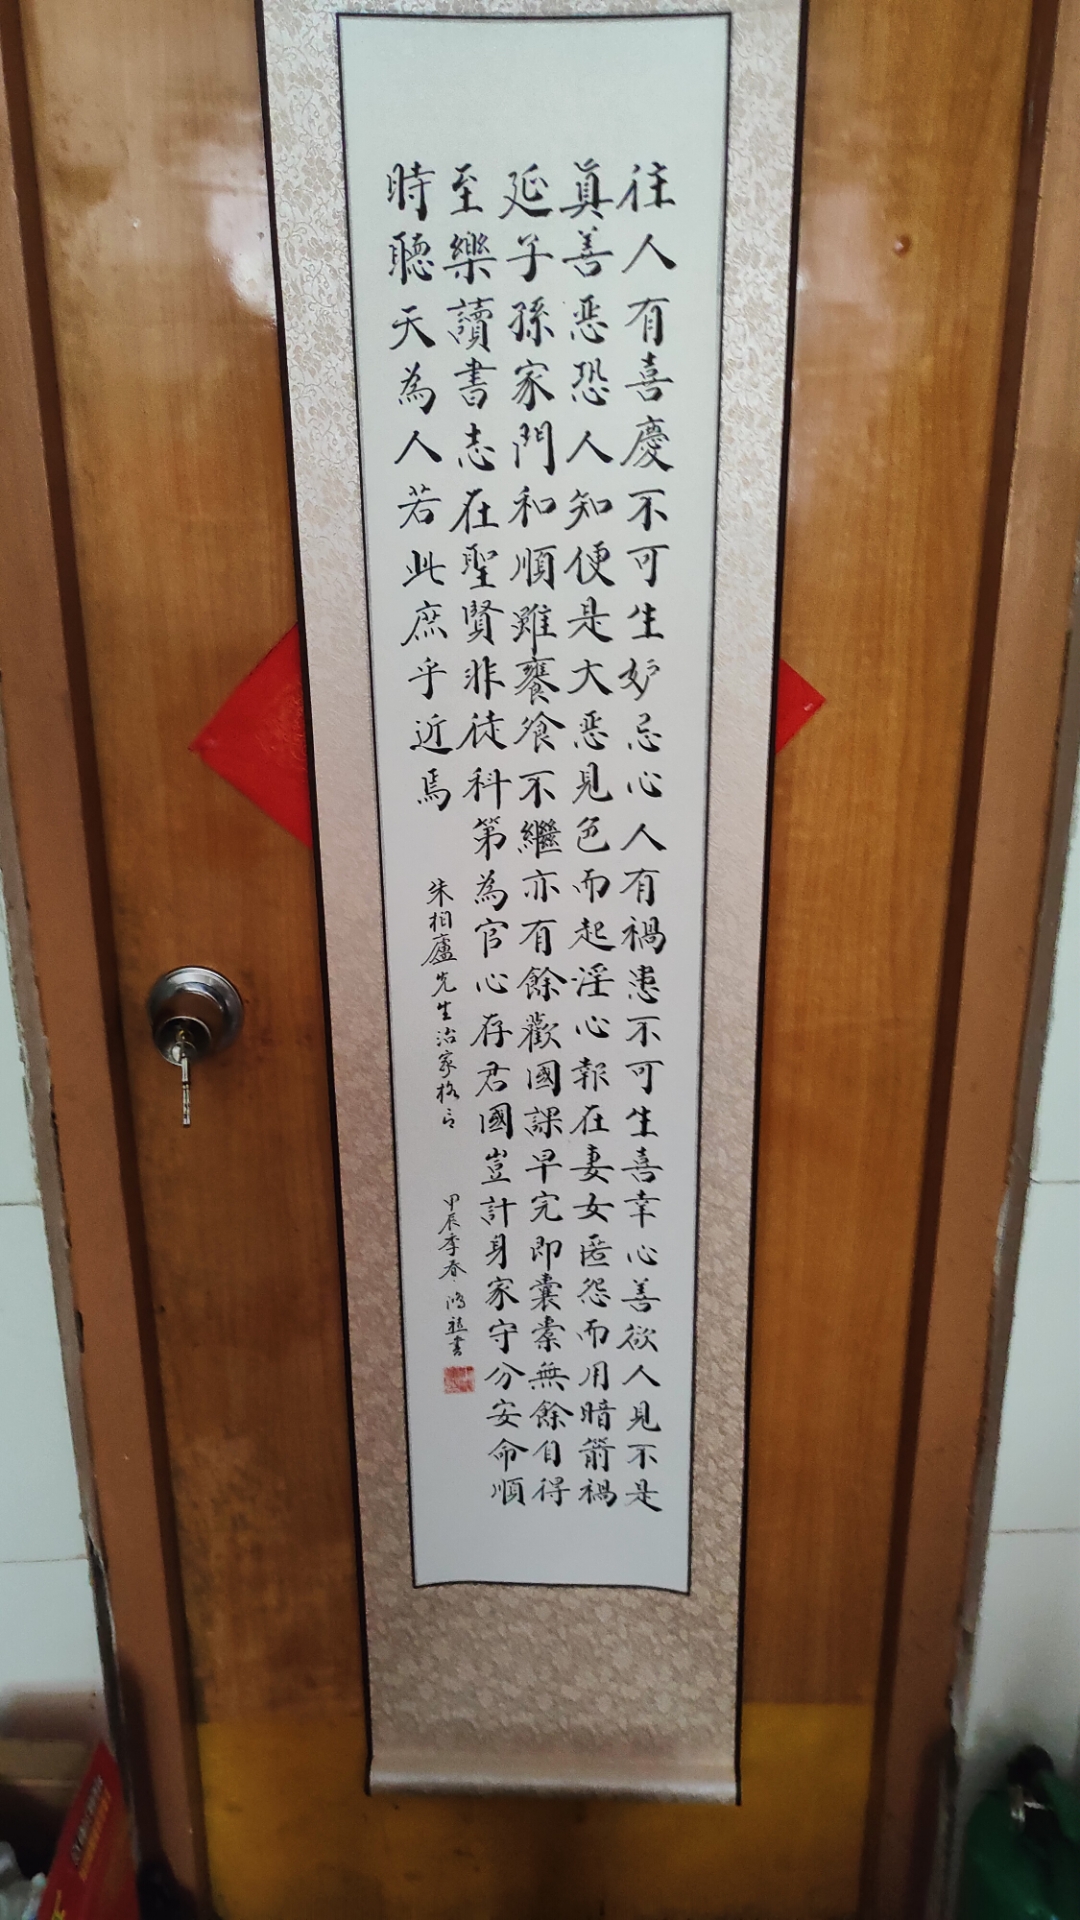 往人有喜慶不可生妒忌心人有禍患不可生喜幸心善欲人見不是
真善惡恐人知便是大惡見色而起淫心報在妻女匿怨而用暗箭禍
延子孫家門和順雖饔飧不繼亦有餘歡國課早完即囊橐無餘自得
至樂讀書志在聖賢非徒科第為官心存君國豈計身家守分安命順
時聽天為人若此庶乎近焉
朱柏廬先生治家格言
甲辰季春
書